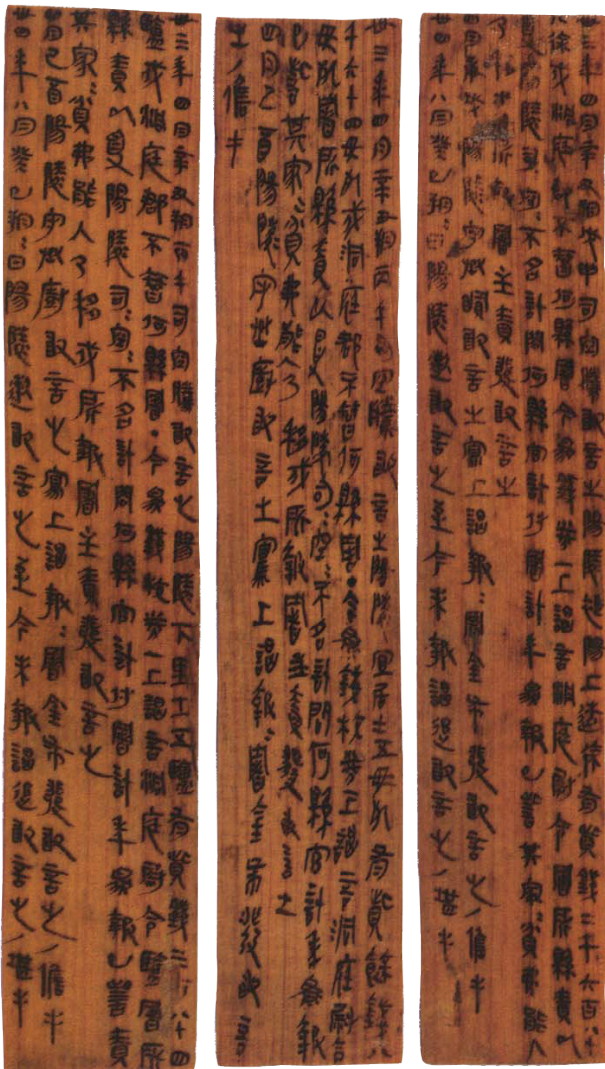 卅三年四月辛丑朔戊申司空騰敢言之陽陵褆陽上造徐有貲錢二千六百八十
八徐戍洞庭郡不智何縣署今為錢校券一上謁言洞庭尉令署所縣責以
受陽陵司=空=不名計問何縣官計付署計年為報已訾其家=貧弗能入
乃移戍所報署主責發敢言之
四月庚戌陽陵守丞瞫敢言之寫上謁報=署金布發敢言之/儋手
卅四年八月癸巳朔=日陽陵遫敢言之至今未報謁追敢言之/堪手
卅三年四月辛丑朔丙午司空騰敢言之陽陵宜居士五毋死有貲餘錢八
千六十四毋死戍洞庭郡不智何縣署·今為錢校券一上謁言洞庭尉令
毋死署所縣責以受陽陵司=空=不名計問何縣官計年為報
已訾其家=貧弗能入乃移戍所報署主責發敢言之
四月己酉陽陵守丞廚敢言之寫上謁報=署金布發敢言
之/儋手
卅三年四月辛丑朔丙午司空騰敢言之陽陵下里士五鹽有貲錢三百八十四
鹽戍洞庭郡不智何縣署·今為錢校券一上謁言洞庭尉令鹽署所
縣責以受陽陵司=空=不名計問何縣官計付署計年為報已訾責
其家=貧弗能入乃移戍所報署主責發敢言之
四月己酉陽陵守丞廚敢言之寫上謁報=署金布發敢言之/儋手
卅四年八月癸巳朔=日陽陵遫敢言之至今未報謁追敢言之/堪手